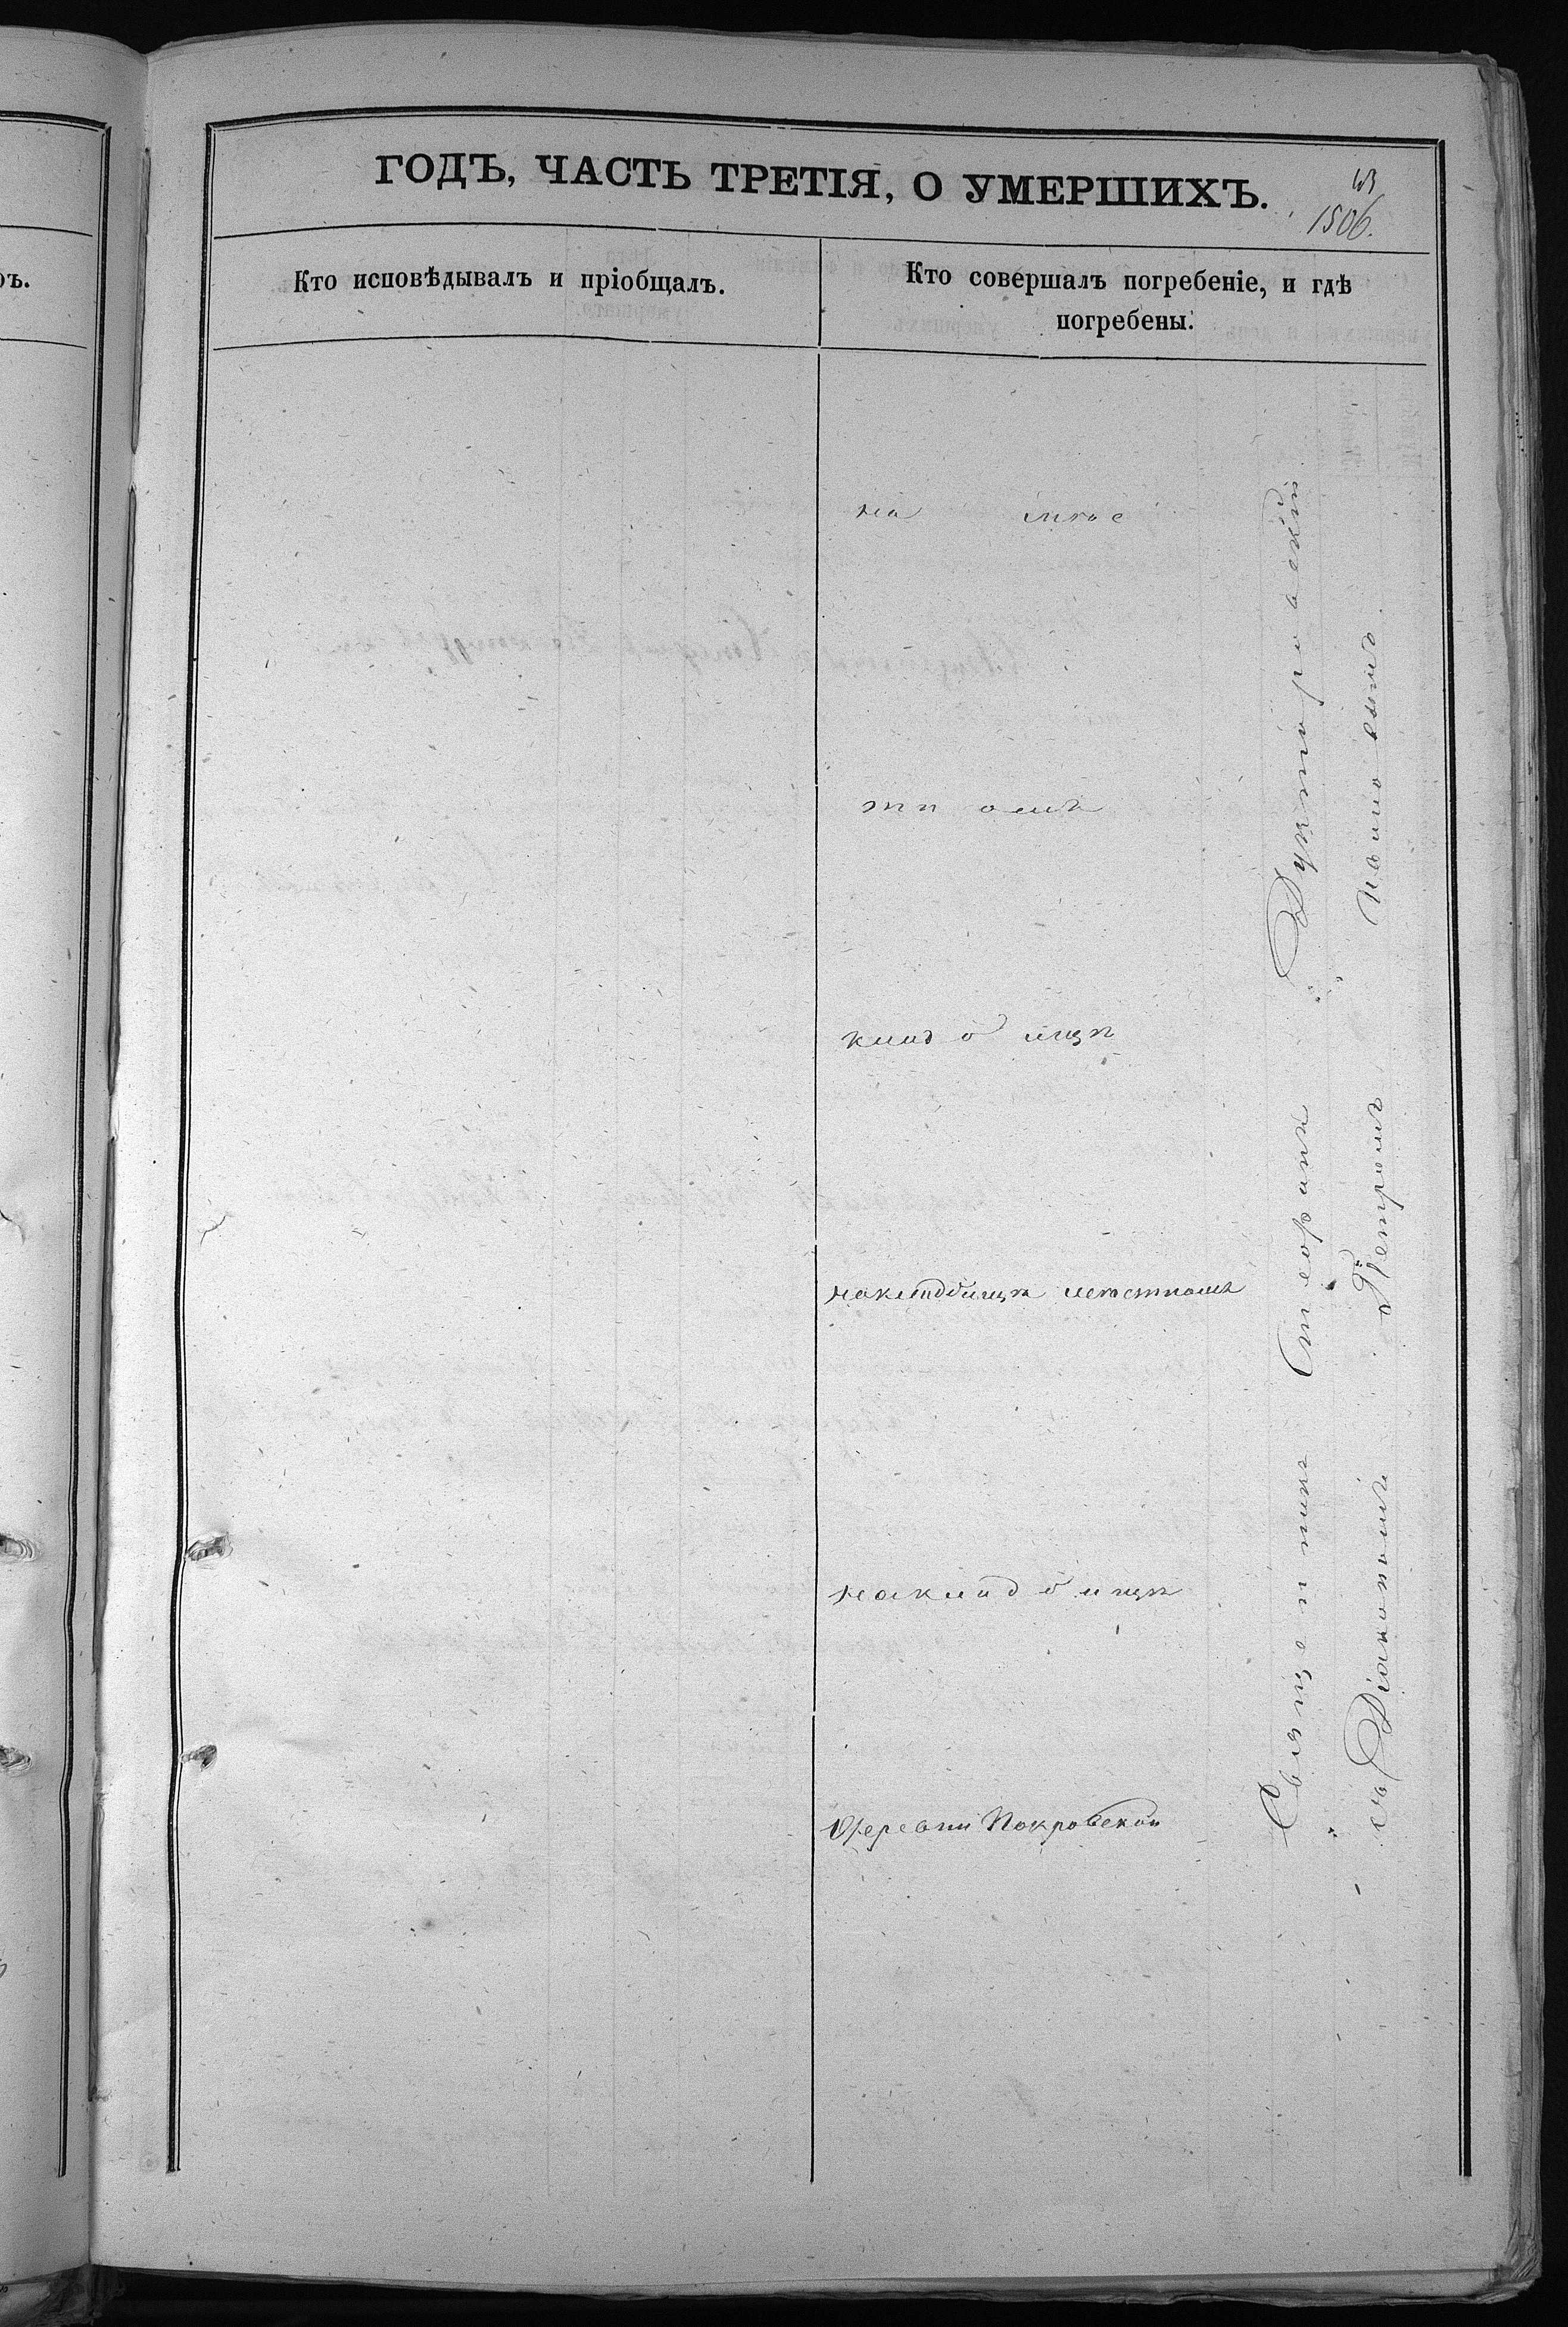 ГОДЪ, ЧАСТЬ ТРЕТІЯ, О УМЕРШИХЪ.
1506.
Кто исповѣдывалъ и пріобщалъ.
Кто совершалъ погребеніе, и гдѣ
погребены.
на мѣс
тн омъ
клад б ищѣ
на кладбищѣ мѣстномъ
на клад б ищѣ
деревни Покровской
Священникъ Стефанъ
съ Діакономъ Петромъ
ръ.